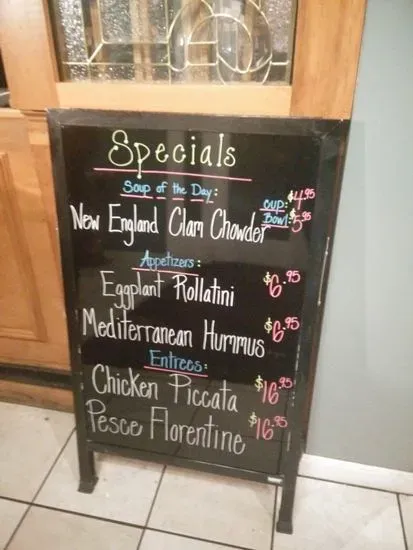 Specials
Soup of the Day:
cup: $4.95
New England Clam Chowder Bowl: $5.95
Appetizers:
Eggplant Rollatini $6.95
Mediterranean Hummus $6.95
Entrees:
Chicken Piccata $16.95
Pesce Florentine $16.95